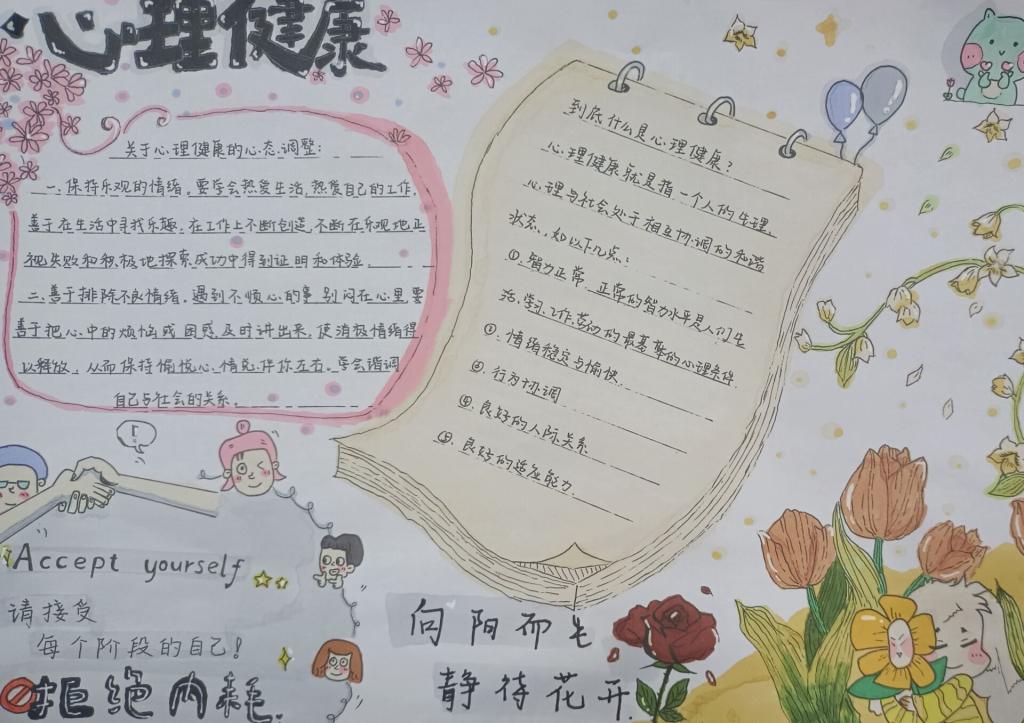 心理健康
关于心理健康的心态调整:
一、保持乐观的情绪,要学会热爱生活,热爱自己的工作,
善于在生活中寻找乐趣,在工作上不断创造,不断在乐观地正
视失败和积极地探索成功中得到证明和体验。
二、善于排除不良情绪,遇到不顺心的事,别闷在心里,要
善于把心中的烦恼或困惑及时讲出来,使消极情绪得
以释放,从而保持愉悦心情总伴你左右。学会谐调
自己与社会的关系。
到底什么是心理健康?
心理健康就是指一个人的生理、
心理与社会处于相互协调的和谐
状态,如以下几点:
①、智力正常,正常的智力水平是人们生
活、学习、工作、劳动的最基本的心理条件.
②、情绪稳定与愉快.
③、行为协调
④、良好的人际关系
⑤、良好的适应能力.
Accept yourself
请接受
每个阶段的自己!
拒绝内耗.
向阳而生
静待花开.